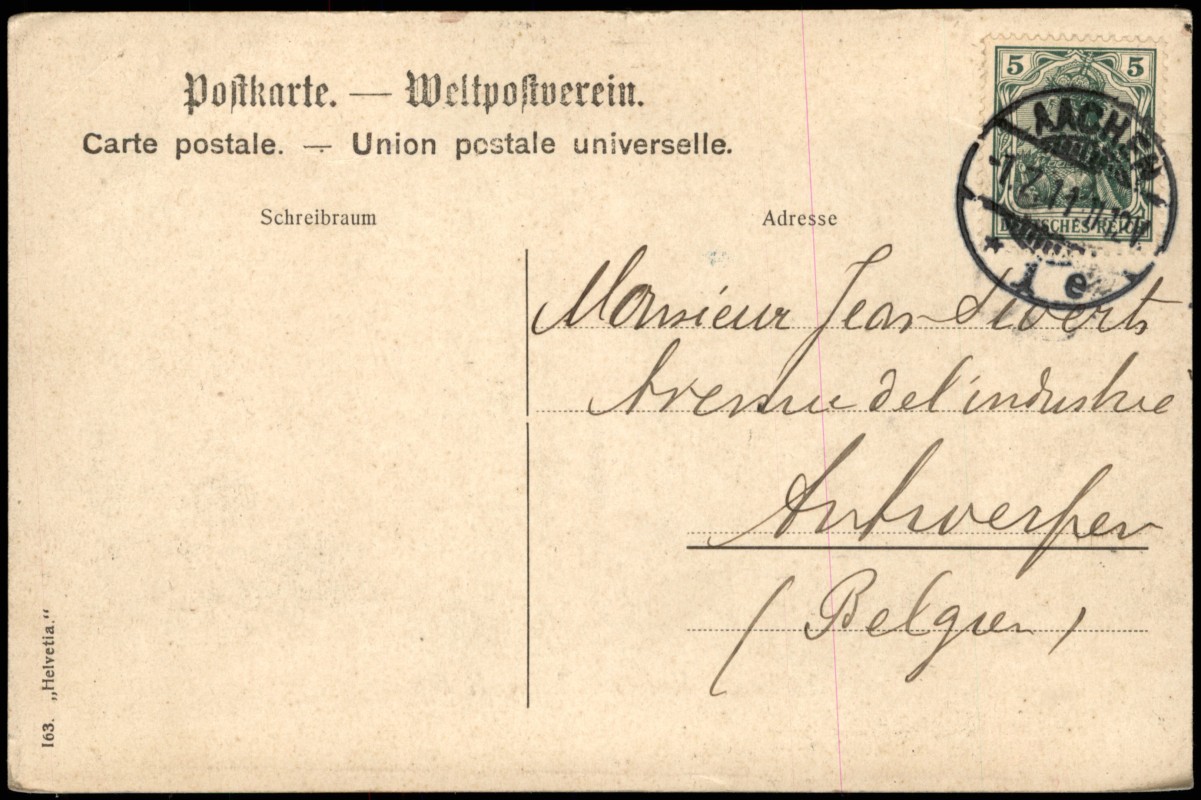 Postkarte. — Weltpostverein.
Carte postale. — Union postale universelle.
Schreibraum
Adresse
5 5
DEUTSCHES REICH
AACHEN
* 1 e
Monsieur Jean
Avenue de l'industrie
Antwerpen
(Belgien)
163. „Helvetia.“